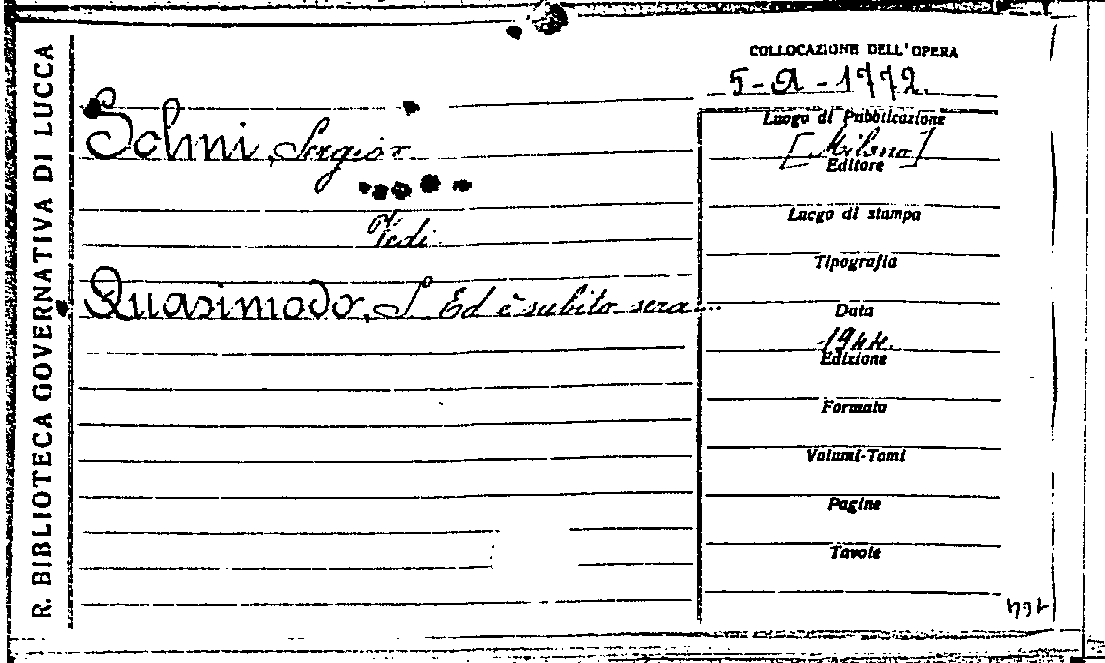 R. BIBLIOTECA GOVERNATIVA DI LUCCA
COLLOCAZIONE DELL'OPERA
5-a-1772.
Solmi, Sergio
Vedi
Quasimodo, S. Ed è subito sera...
Luogo di Pubblicazione
[Milano]
Editore
Luogo di stampa
Tipografia
Data
1944.
Edizione
Formato
Volumi-Tomi
Pagine
Tavole